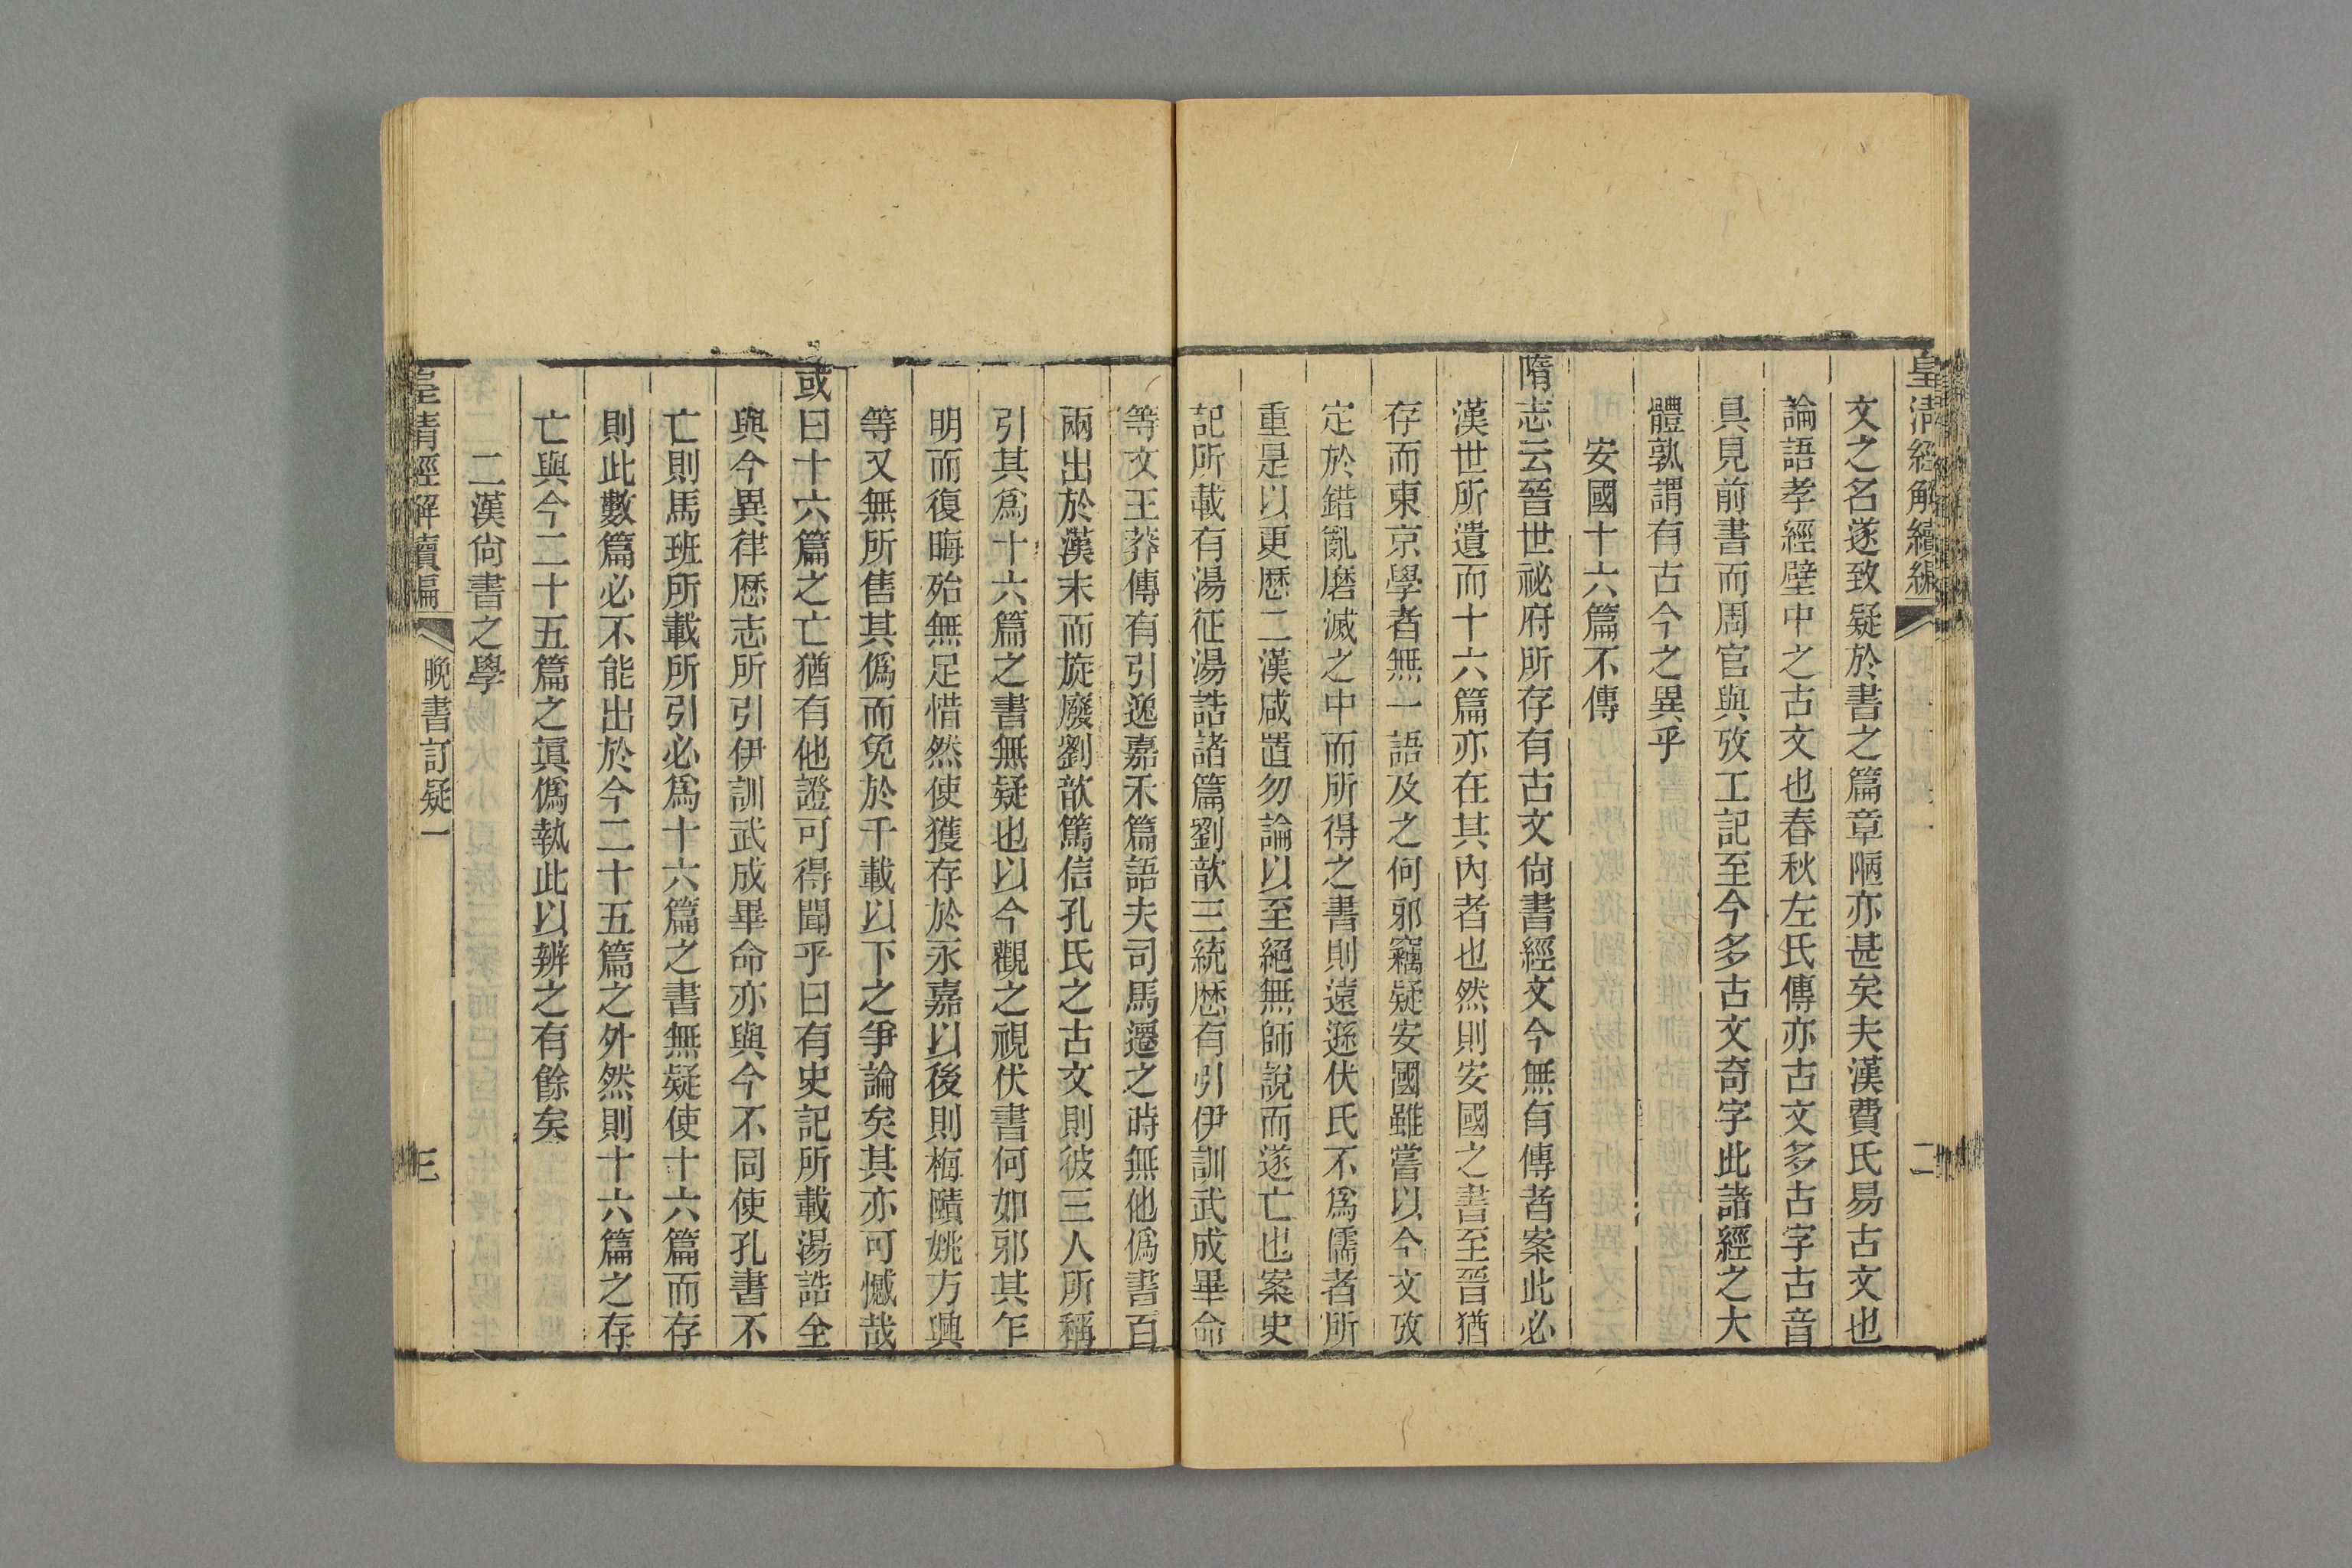 皇清經解續編
二
文之名遂致疑於書之篇章陋亦甚矣夫漢費氏易古文也
論語孝經壁中之古文也春秋左氏傳亦古文多古字古音
具見前書而周官與攷工記至今多古文奇字此諸經之大
體孰謂有古今之異乎
安國十六篇不傳
隋志云晉世祕府所存有古文尙書經文今無有傳者案此必
漢世所遺而十六篇亦在其內者也然則安國之書至晉猶
存而東京學者無一語及之何邪竊疑安國雖嘗以今文攷
定於錯亂磨滅之中而所得之書則遠遜伏氏不爲儒者所
重是以更歷二漢咸置勿論以至絕無師說而遂亡也案史
記所載有湯征湯誥諸篇劉歆三統歷有引伊訓武成畢命
等文王莽傳有引逸嘉禾篇語夫司馬遷之時無他僞書百
兩出於漢末而旋廢劉歆篤信孔氏之古文則彼三人所稱
引其爲十六篇之書無疑也以今觀之視伏書何如邪其乍
明而復晦殆無足惜然使獲存於永嘉以後則梅賾姚方興
等又無所售其僞而免於千載以下之爭論矣其亦可憾哉
或曰十六篇之亡猶有他證可得聞乎曰有史記所載湯誥全
與今異律歷志所引伊訓武成畢命亦與今不同使孔書不
亡則馬班所載所引必爲十六篇之書無疑使十六篇而存
則此數篇必不能出於今二十五篇之外然則十六篇之存
亡與今二十五篇之眞僞執此以辨之有餘矣
二漢尙書之學
皇清經解續編
晚書訂疑一
三